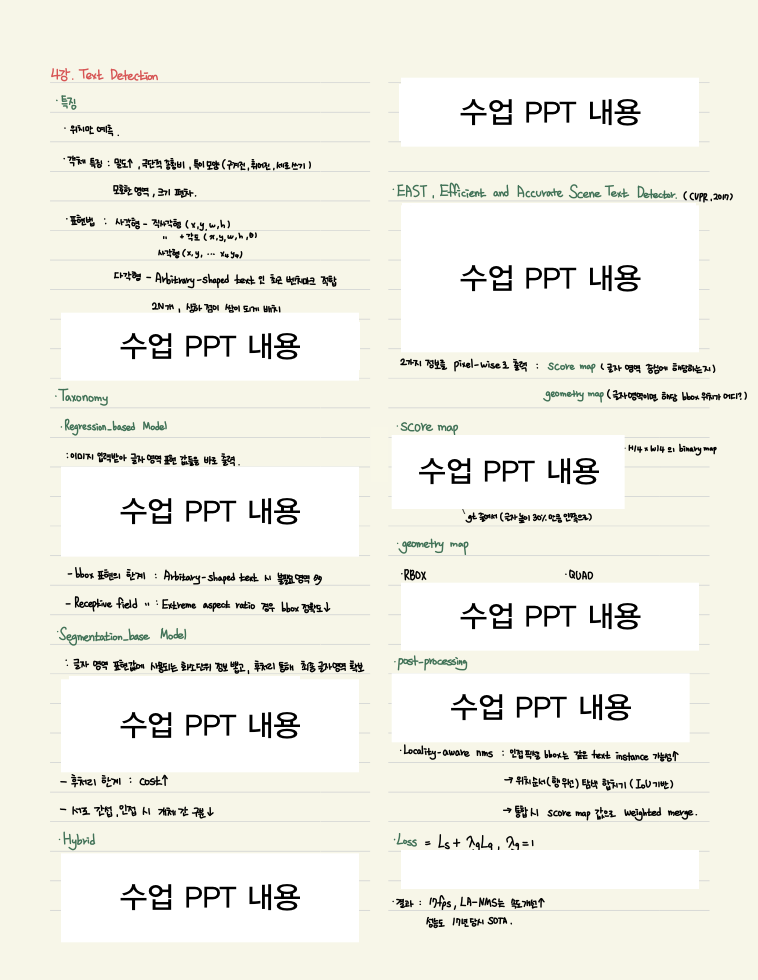 4강. Text Detection
· 특징
· 위치만 예측.
· 객체 특징 : 밀도↑, 극단적 종횡비, 특이 모양 (구겨진, 휘어진, 세로쓰기)
모호한 영역, 크기 편차.
· 표현법 : 사각형 - 직사각형 (x, y, w, h)
" + 각도 (x, y, w, h, θ)
사각형 (x, y, ... x4 y4)
다각형 - Arbitrary-shaped text 인 최근 벤치마크 적합
2N개, 상하 점이 쌍이 되게 배치
수업 PPT 내용
· Taxonomy
· Regression_based Model
: 이미지 입력받아 글자 영역 표현 값들을 바로 출력.
수업 PPT 내용
- bbox 표현의 한계 : Arbitrary-shaped text 시 불필요 영역
- Receptive field " : Extreme aspect ratio 경우 bbox 정확도↓
· Segmentation_base Model
: 글자 영역 표현값에 사용되는 화소단위 정보 뽑고, 후처리 통해 최종 글자 영역 확보
수업 PPT 내용
- 후처리 한계 : cost↑
- 서로 간섭, 인접 시 개체 간 구분↓
· Hybrid
수업 PPT 내용
수업 PPT 내용
· EAST, Efficient and Accurate Scene Text Detector. (CVPR, 2017)
수업 PPT 내용
2가지 정보를 pixel-wise로 출력 : score map (글자 영역 중심에 해당하는지)
geometry map (글자영역이면 해당 bbox 위치가 어디?)
· score map
· H/4 x W/4 의 binary map
수업 PPT 내용
gt 줄여서 (글자 높이 30% 만큼 안쪽으로)
· geometry map
· RBOX · QUAD
수업 PPT 내용
· post-processing
수업 PPT 내용
· Locality-aware nms : 인접 픽셀 bbox는 같은 text instance 가능성↑
→ 위치순서(행 우선) 탐색 합치기 (IoU 기반)
→ 통합 시 score map 값으로 weighted merge.
· Loss = Ls + λgLg, λg=1
· 결과 : 17fps, LA-NMS는 속도개선↑
성능도 17년 당시 SOTA.